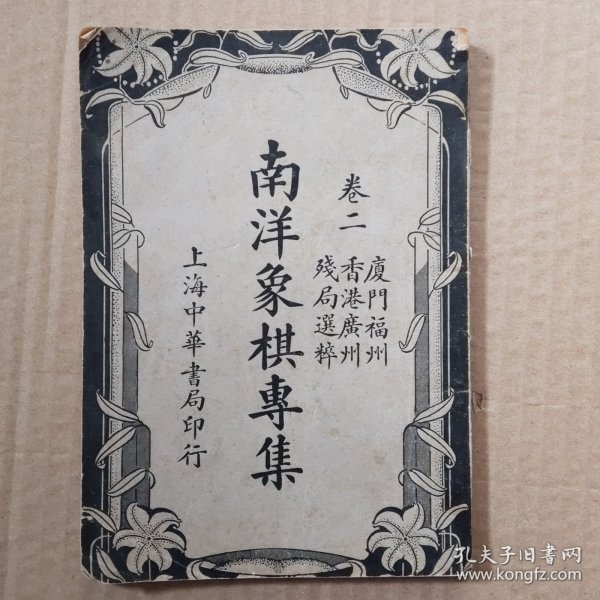 卷二
廈門福州
香港廣州
殘局選粹
南洋象棋專集
上海中華書局印行
孔夫子旧书网
www.kongfz.com